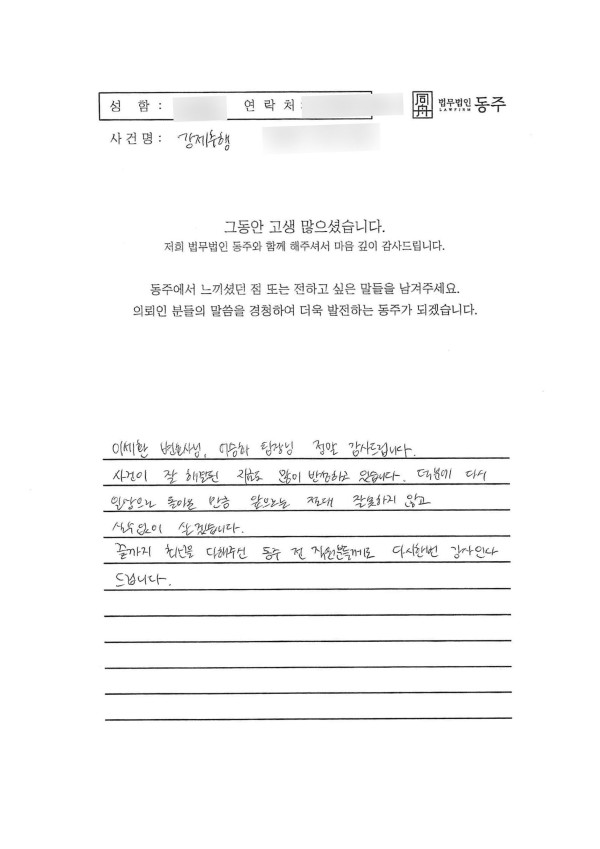 성 함 :
연 락 처 :
同舟 법무법인 동주
LAWFIRM
사 건 명 : 강제추행
그동안 고생 많으셨습니다.
저희 법무법인 동주와 함께 해주셔서 마음 깊이 감사드립니다.
동주에서 느끼셨던 점 또는 전하고 싶은 말들을 남겨주세요.
의뢰인 분들의 말씀을 경청하여 더욱 발전하는 동주가 되겠습니다.
이세환 변호사님, 이승하 팀장님 정말 감사드립니다.
사건이 잘 해결된 지금도 많이 반성하고 있습니다. 덕분에 다시
일상으로 돌아온 만큼 앞으로는 절대 잘못하지 않고
실수없이 살겠습니다.
끝까지 최선을 다해주신 동주 전 직원분들께도 다시한번 감사인사
드립니다.